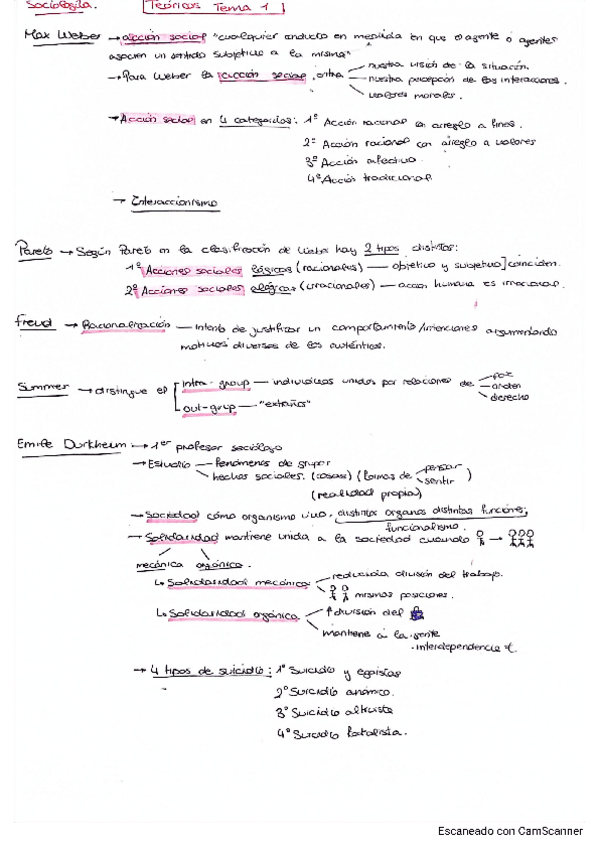 Sociología. Teóricos Tema 1
Max Weber → acción social "cualquier conducta en medida en que el agente o agentes
asocien un sentido subjetivo a la misma"
→ Para Weber la acción social entra — nuestra visión de la situación.
— nuestra percepción de las interacciones.
— valores morales.
→ Acción social en 4 categorías: 1ª Acción racional con arreglo a fines.
2ª Acción racional con arreglo a valores
3ª Acción afectiva.
4ª Acción tradicional
→ Interaccionismo
Pareto → Según Pareto en la clasificación de Weber hay 2 tipos distintos:
1ª Acciones sociales lógicas (racionales) — objetivo y subjetivo] coinciden.
2ª Acciones sociales alógicas (irracionales) — accion humana es irracional.
Freud → Racionalización — Intento de justificar un comportamiento/intenciones argumentando
motivos diversos de los auténticos.
Summer → distingue el — intra-group — individuos unidos por relaciones de — paz
— orden
— derecho
out-grup — "extraños"
Emile Durkheim → 1er profesor sociólogo
→ Estudio — fenómenos de grupo
— hechos sociales. (cosas) (formas de — pensar
— sentir )
(realidad propia)
→ Sociedad cómo organismo vivo, distintos organos distintas funciones;
funcionalismo.
→ Solidaridad mantiene unida a la sociedad cuando →
mecánica orgánica.
↳ Solidaridad mecánica — reducida división del trabajo.
— mismas posiciones.
↳ Solidaridad orgánica — ↑ división del
— mantiene a la gente
· interdependencia
→ 4 tipos de suicidio: 1º Suicidio y egoístas
2º Suicidio anómico.
3º Suicidio altruista
4º Suicidio fatalista.
Escaneado con CamScanner